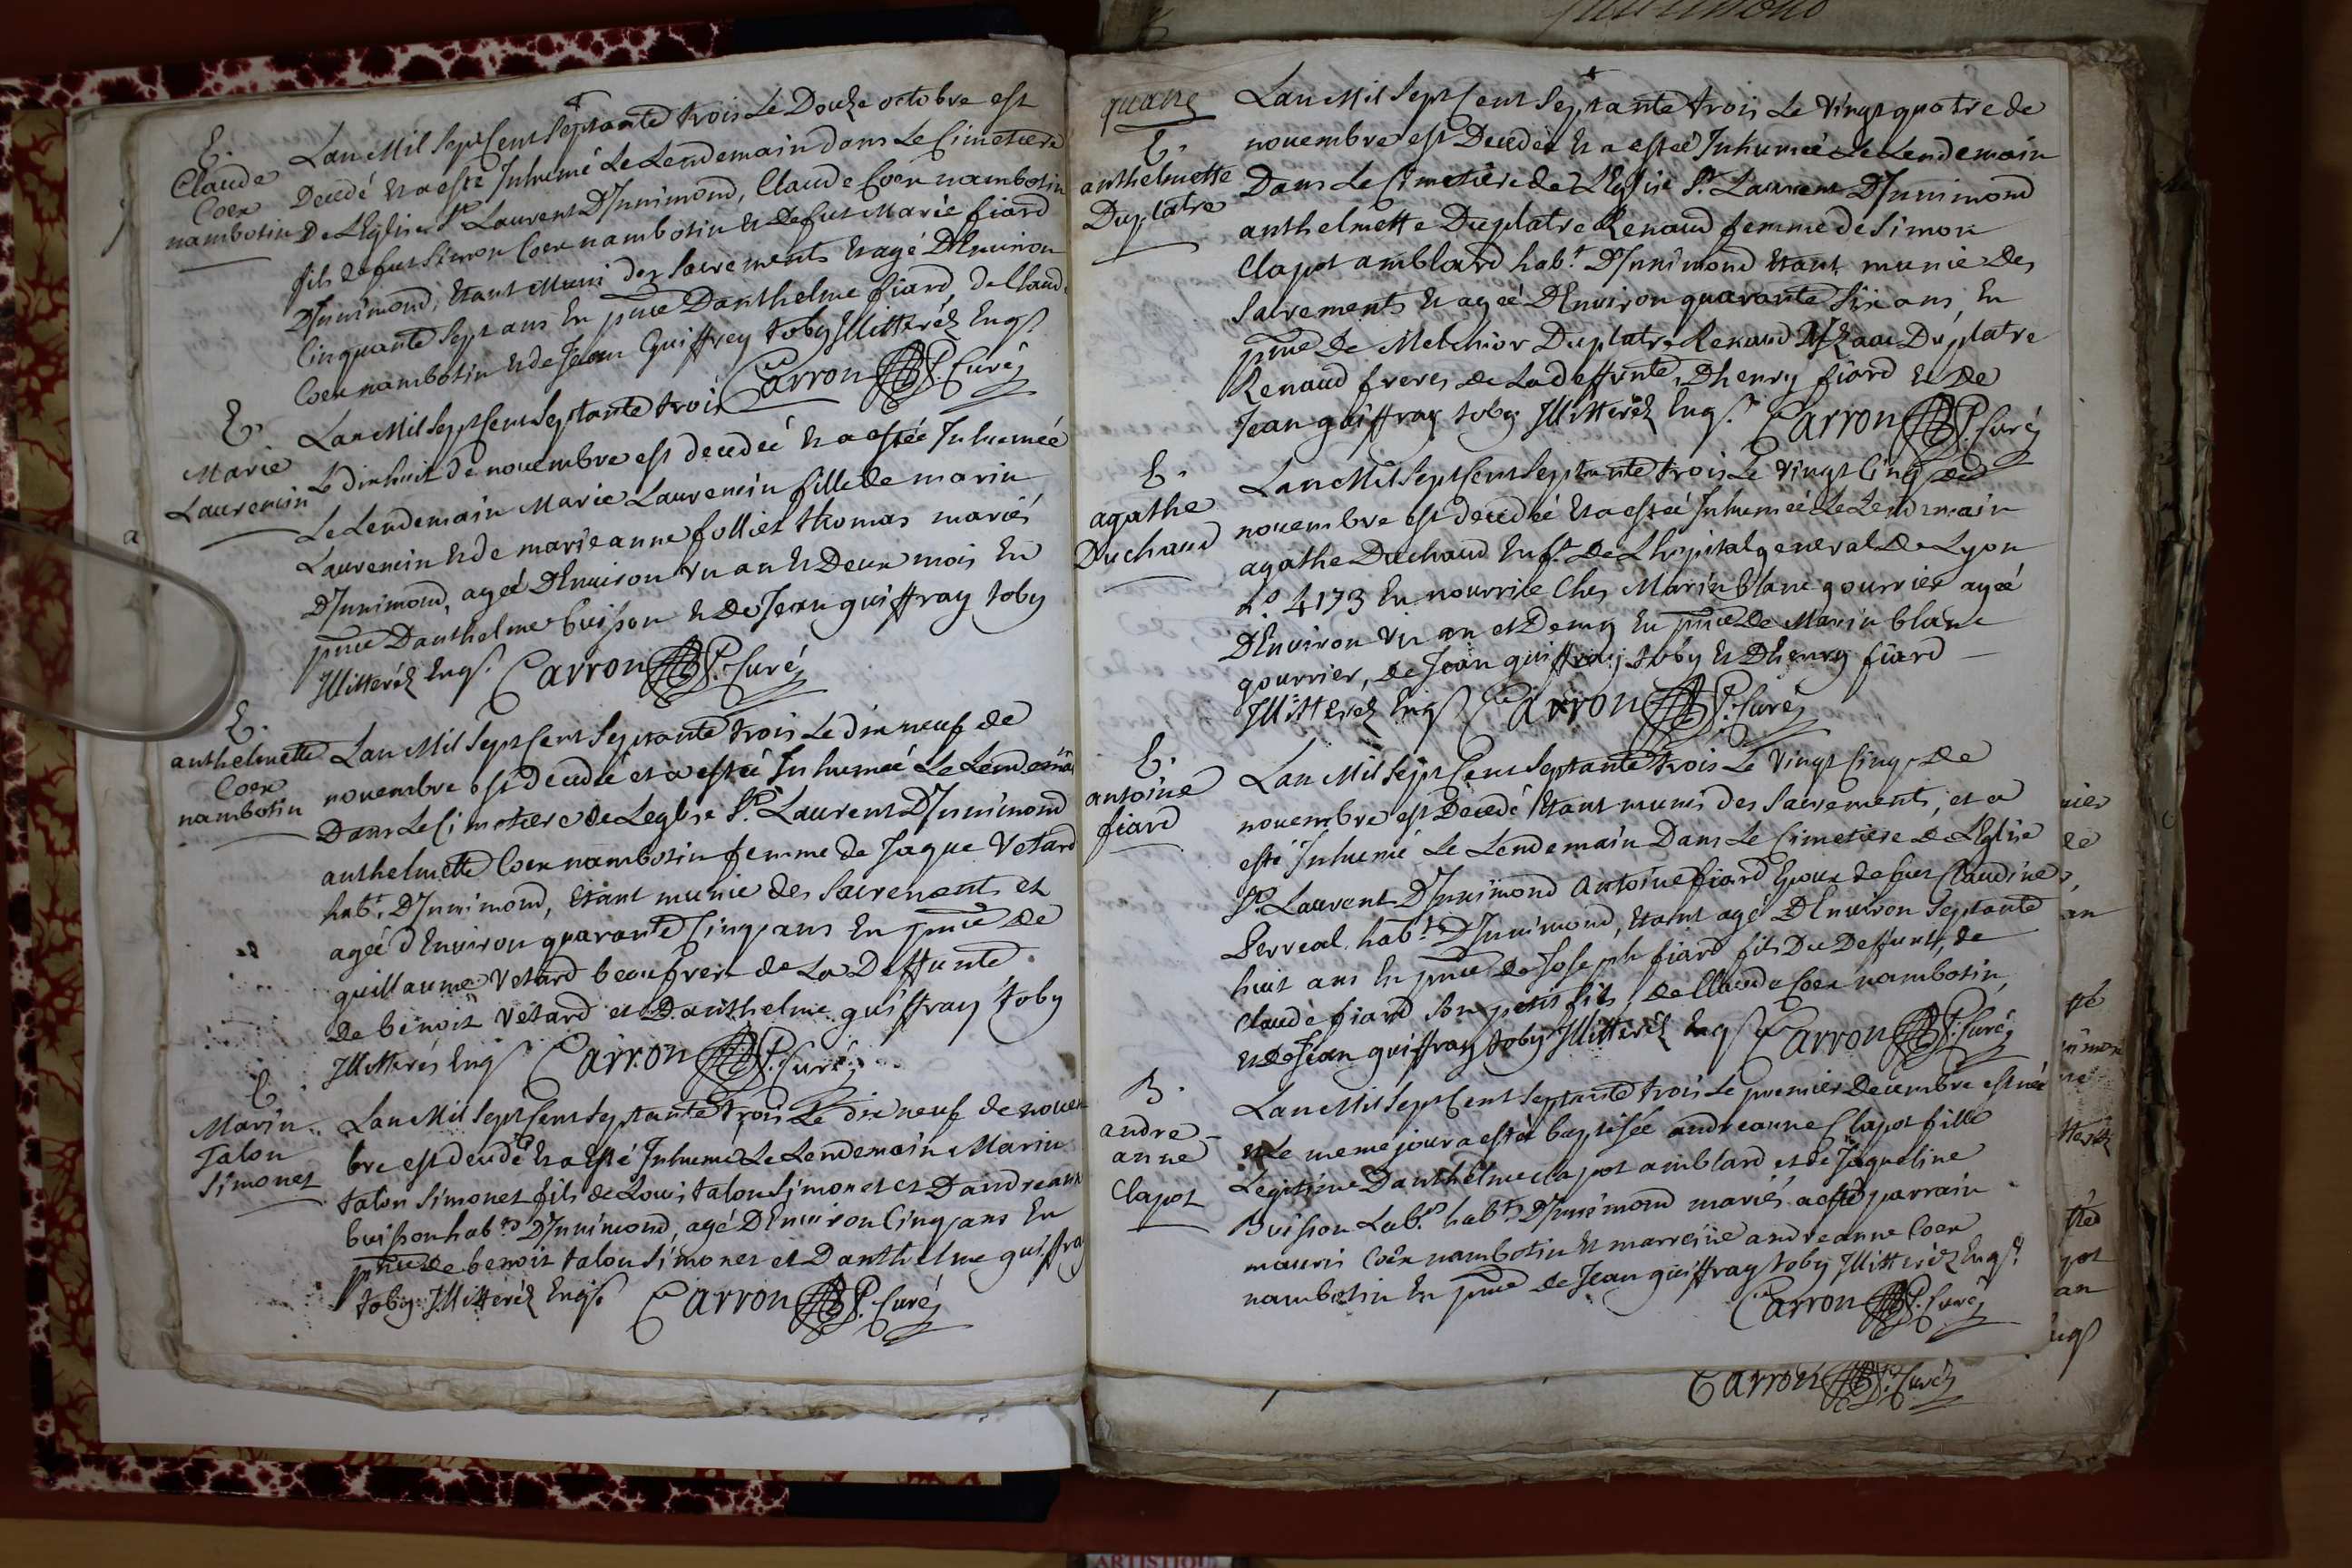 E.
Claude
Coex
nambotin
Lan Mil Sept Cent Septante trois Le Douze octobre est
Decedé Et a esté Inhumé Le Lendemain dans Le Cimetiere
De LEglise St. Laurent DInnimond, Claude Coex nambotin
fils de fut Simon Coex nambotin Et de fut Marie fiard
DInnimond, Etant Muni des Sacrements Et agé DEnuiron
Cinquante Sept ans En pnce Danthelme fiard, de Claude
Coex nambotin Et de Jean Guiffrey toby Illitteréz Enqs
Carron P. Curé
E.
Marie
Lauremin
Lan Mil Sept Cent Septante trois
Le dixhuit de nouembre est decedeé Et a estée Inhumeé
Le Lendemain Marie Lauremin fille de marin
Lauremin Et de marie anne folliet thomas mariés
DInnimond, ageé DEnuiron Vn an Et Deux mois En
pnce Danthelme buisson Et de Jean guiffray toby
Illitteréz Enqs. Carron P. Curé
E.
anthelmette
Coex
nambotin
Lan Mil Sept Cent Septante trois Le dix neuf de
nouembre est decedeé et a esteé Inhumeé Le Lendemain
Dans Le Cimetiere de Leglise St. Laurent DInnimond
anthelmette Coex nambotin femme de Jaque Vetard
habt. DInnimond, Etant munie des Sacrements et
ageé dEnuiron quarante Cinq ans En pnce de
guillaume Vetard beaufrere de La Deffunte
de benoit Vetard et Danthelme guiffray toby
Illitterés Enqs Carron P. Curé
E.
Marin
Talon
Simonet
Lan Mil Sept Cent Septante trois Le dix neuf de nouem
bre est decedé Et a Esté Inhumé Le Lendemain Marin
talon Simonet fils de Louis talon Simonet et Dandreanne
buisson habts DInnimond, agé DEnuiron Cinq ans En
pnce de benoit talon Simonet et Danthelme guiffray
toby Illitteréz Enqs. Carron P. Curé
quatre
E.
anthelmette
Duplatre
Lan Mil Sept Cent Septante trois Le Vingt quatre de
nouembre est Decedeé Et a esteé Inhumeé Le Lendemain
Dans Le Cimetiere de LEglise St. Laurent DInnimond
anthelmette Duplatre Renaud femme de Simon
Clapot amblard habt. DInnimond Etant munie des
Sacrements Et ageé DEnuiron quarante Six ans, En
pnce De Melchior Duplatre Renaud DIzaac Duplatre
Renaud freres de Ladeffunte, Dhenry fiard Et De
Jean guiffray toby Illitteréz Enqs. Carron P. Curé
E.
agathe
Duchaud
Lan Mil Sept Cent Septante trois Le Vingt Cinq de
nouembre est decedeé Et a esteé Inhumeé Le Lendemain
agathe Duchaud Enft. De Lhopital general de Lyon
no. 4173 En nourrice Ches Marin blanc gourrier ageé
DEnuiron Vn an et Demy En pnce De Marin blanc
gourrier, de Jean guiffray toby Et Dhenry fiard
Illitteréz Enqs Carron P. Curé
E.
antoine
fiard
Lan Mil Sept Cent Septante trois Le Vingt Cinq de
nouembre est Decedé Etant munis des Sacrements, et a
esté Inhumé Le Lendemain Dans Le Cimetiere de LEglise
St. Laurent DInnimond Antoine fiard Epoux de fut Claudine
Perreal habt. DInnimond, Etant agé DEnuiron Septante
huit ans En pnce de Joseph fiard fils Du Deffunt, de
Claude fiard Son petit fils, de Claude Coex nambotin,
Et de Jean guiffray toby Illitteréz Enqs Carron P. Curé
B.
andre
anne
Clapot
Lan Mil Sept Cent Septante trois Le premier Decembre est née
Et Le meme jour a esteé baptisée andreanne Clapot fille
Legitime Danthelme Clapot amblard et de Jaqueline
Buisson Labrs. habts DInnimond mariés a esté parrain
mauris Coex nambotin Et marreine andreanne Coex
nambotin En pnce de Jean guiffray toby Illitteréz Enqs.
Carron P. Curé
Carron P. Curé